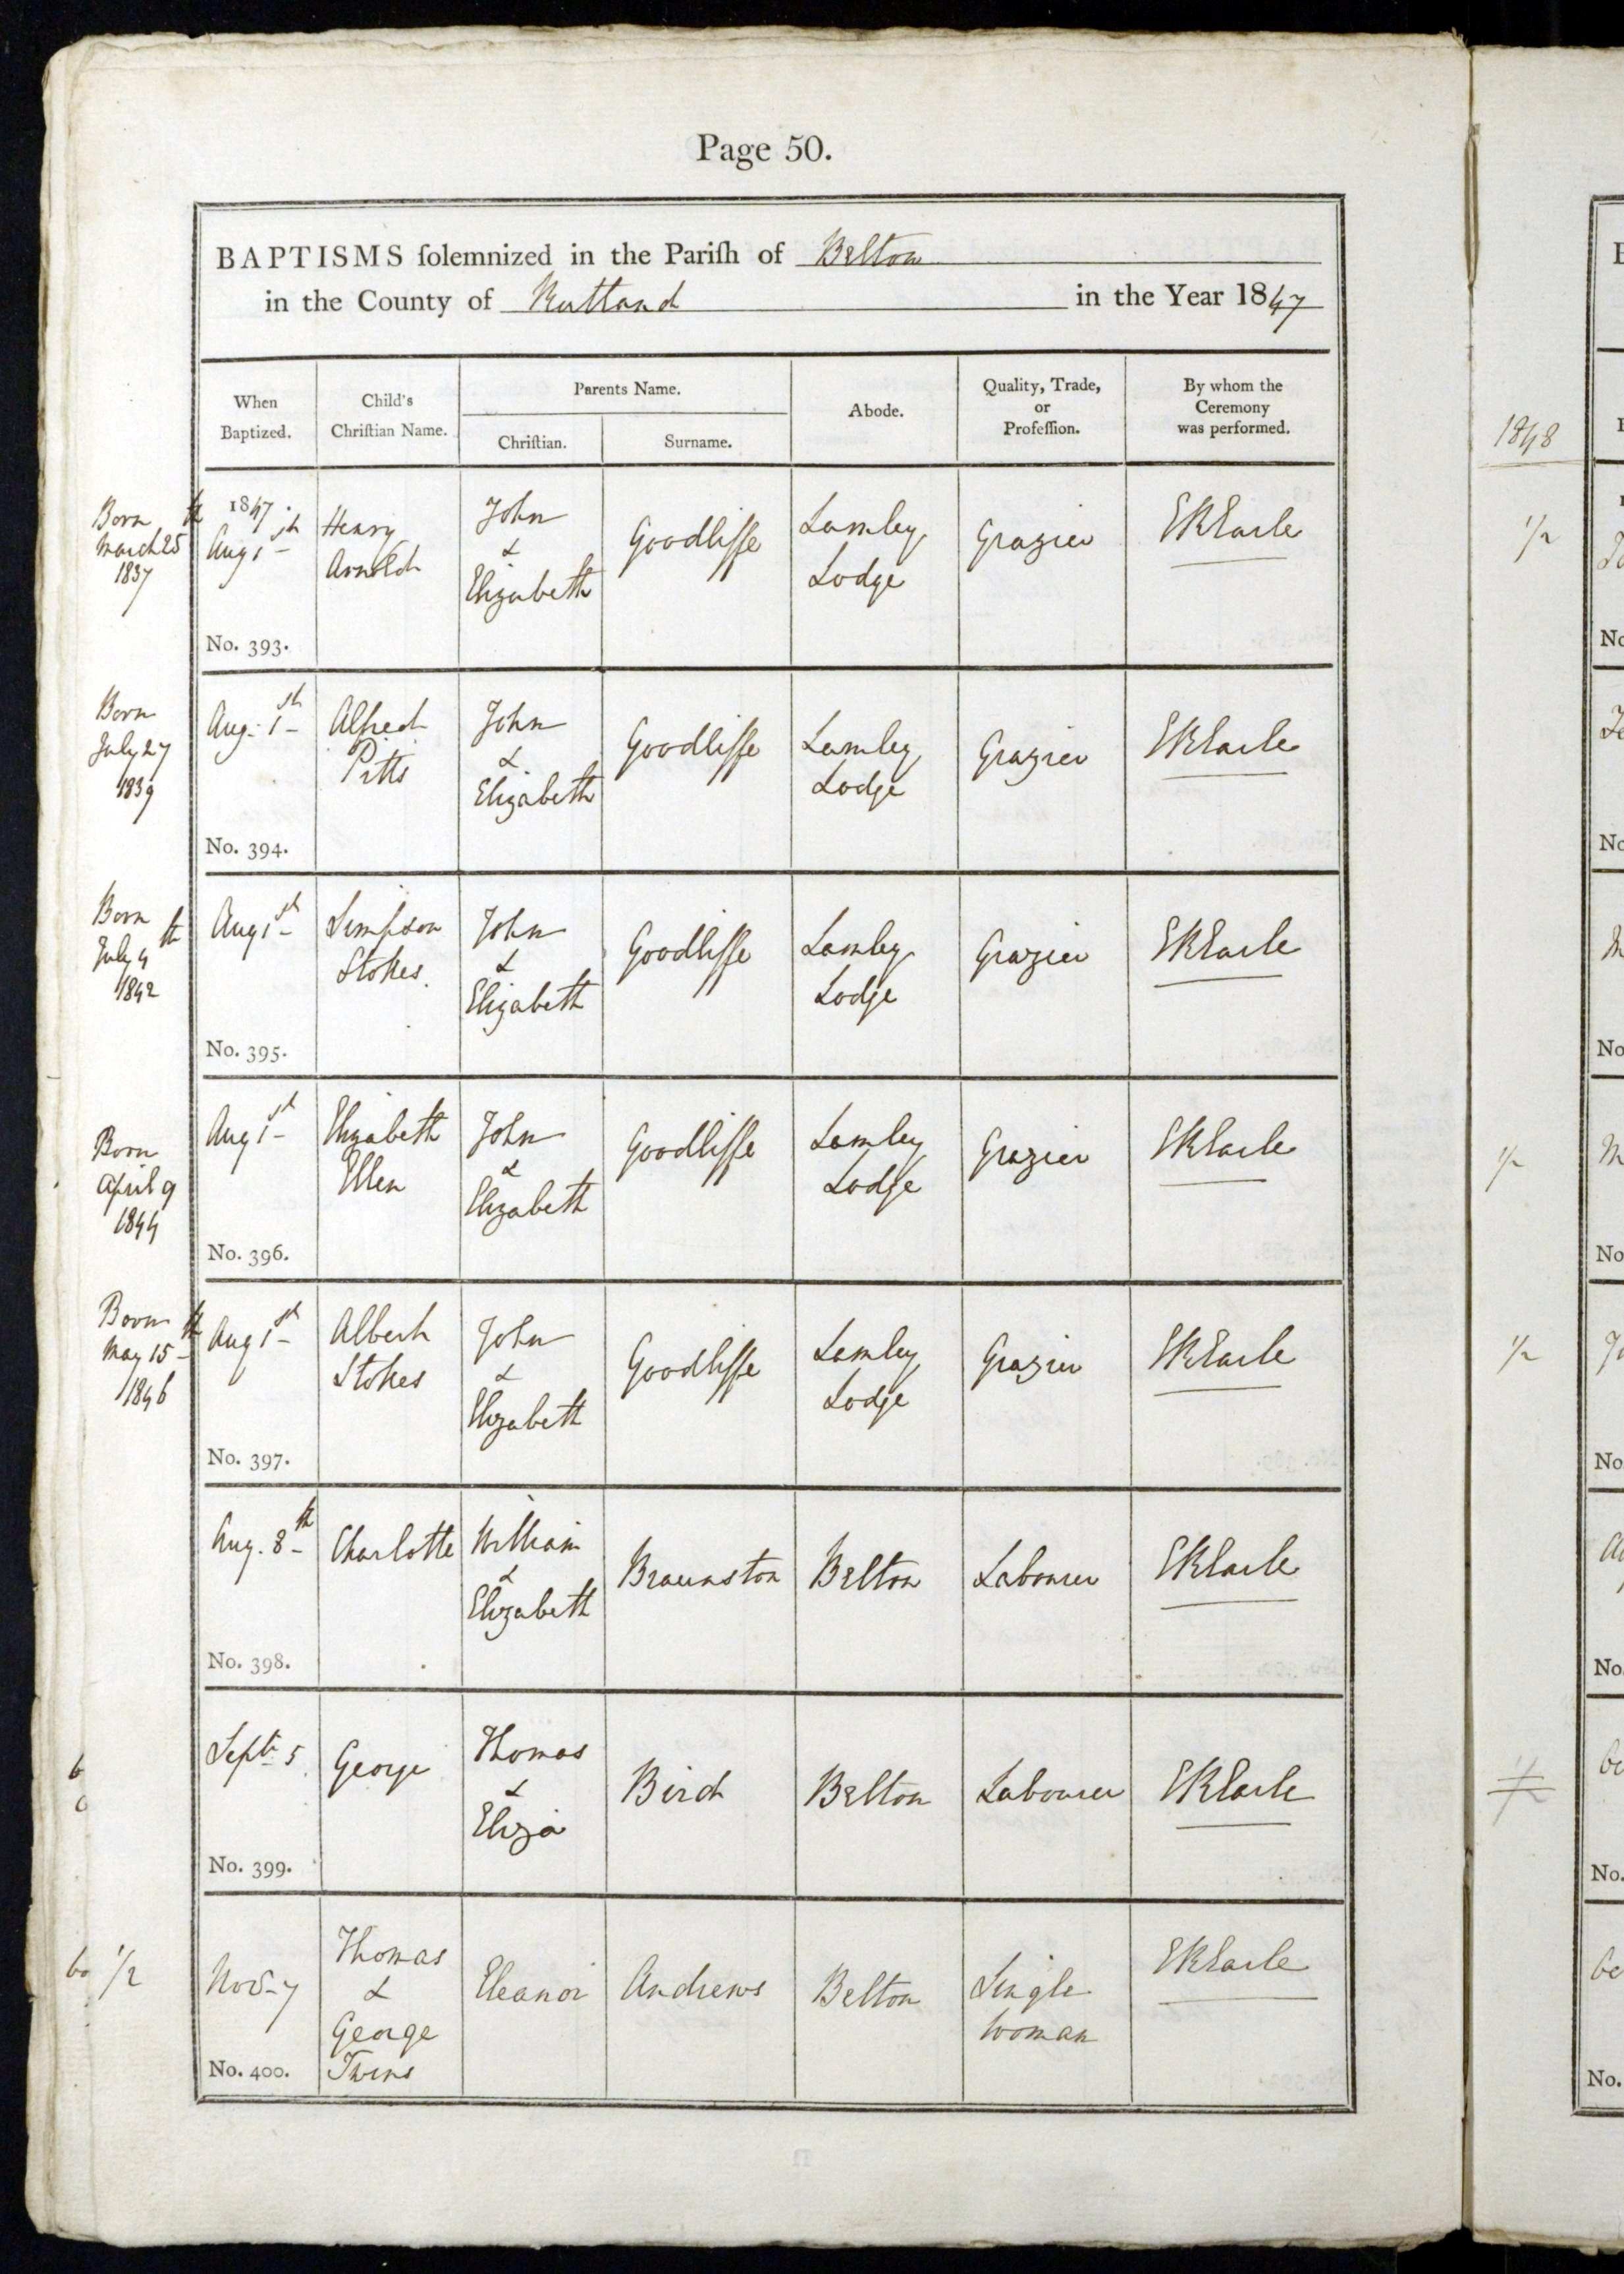 Page 50.
BAPTISMS ſolemnized in the Pariſh of Belton
in the County of Rutland in the Year 1847
When Baptized.
Child's Chriſtian Name.
Parents Name.
Chriſtian.
Surname.
Abode.
Quality, Trade, or Profeſſion.
By whom the Ceremony was performed.
Born
March 25th
1837
1847.
Aug 1st
No. 393.
Henry
Arnold
John
&
Elizabeth
Goodliffe
Lamley
Lodge
Grazier
EKEarle
Born
July 27
1839
Aug. 1st
No. 394.
Alfred
Pitts
John
&
Elizabeth
Goodliffe
Lamley
Lodge
Grazier
EKEarle
Born
July 4th
1842
Aug 1st
No. 395.
Simpson
Stokes.
John
&
Elizabeth
Goodliffe
Lamley
Lodge
Grazier
EKEarle
Born
April 9
1844
Aug 1st
No. 396.
Elizabeth
Ellen
John
&
Elizabeth
Goodliffe
Lamley
Lodge
Grazier
EKEarle
Born
May 15th
1846
Aug 1st
No. 397.
Albert
Stokes
John
&
Elizabeth
Goodliffe
Lamley
Lodge
Grazier
EKEarle
Aug. 8th
No. 398.
Charlotte
William
&
Elizabeth
Braunston
Belton
Labourer
EKEarle
Septr 5
No. 399.
George
Thomas
&
Eliza
Bird
Belton
Labourer
EKEarle
1/2
Novr 7
No. 400.
Thomas
&
George
Twins
Eleanor
Andrews
Belton
Single
Woman
EKEarle
1848
1/2
1/2
1/2
No
No
No
No
No
No.
No.
No.